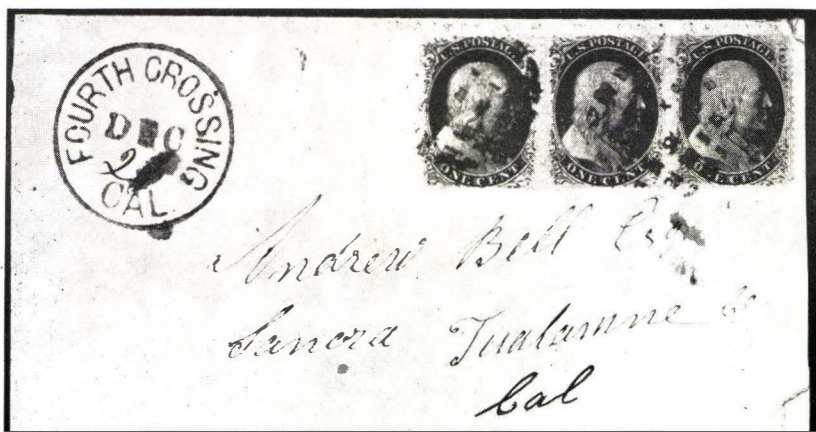 FOURTH CROSSING
DEC
CAL.
U.S. POSTAGE
ONE CENT
U.S. POSTAGE
ONE CENT
U.S. POSTAGE
ONE CENT
Andrew Bell Esq
Sanora Tualamne Co
Cal